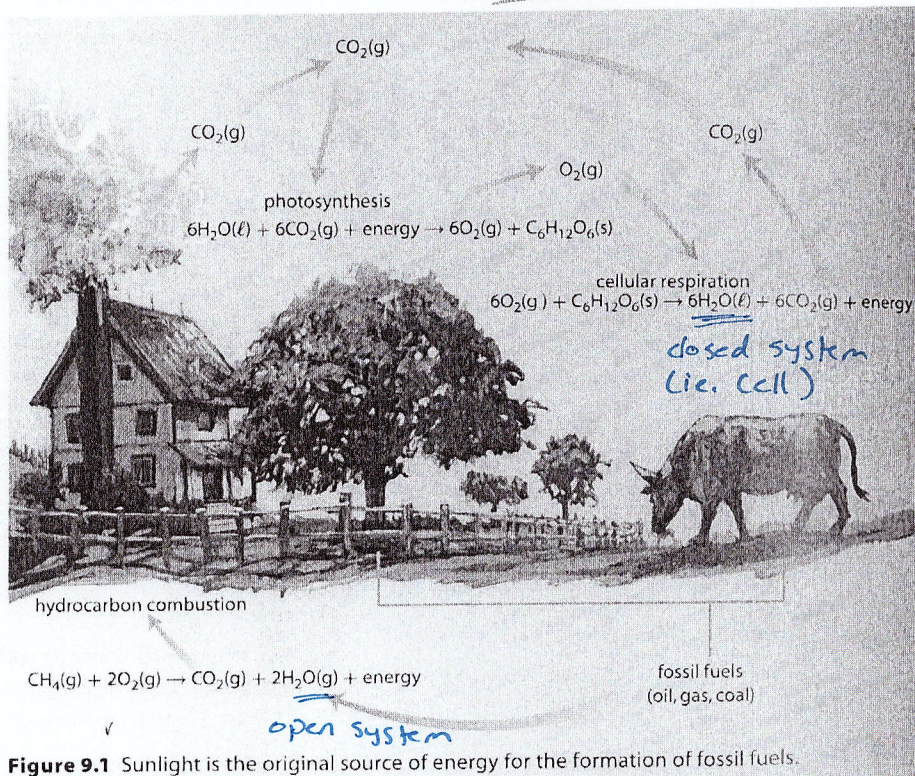 CO₂(g)
CO₂(g)
CO₂(g)
O₂(g)
photosynthesis
6H₂O(ℓ) + 6CO₂(g) + energy → 6O₂(g) + C₆H₁₂O₆(s)
cellular respiration
6O₂(g) + C₆H₁₂O₆(s) → 6H₂O(ℓ) + 6CO₂(g) + energy
closed system
(ie. Cell)
hydrocarbon combustion
CH₄(g) + 2O₂(g) → CO₂(g) + 2H₂O(g) + energy
fossil fuels
(oil, gas, coal)
open system
Figure 9.1 Sunlight is the original source of energy for the formation of fossil fuels.